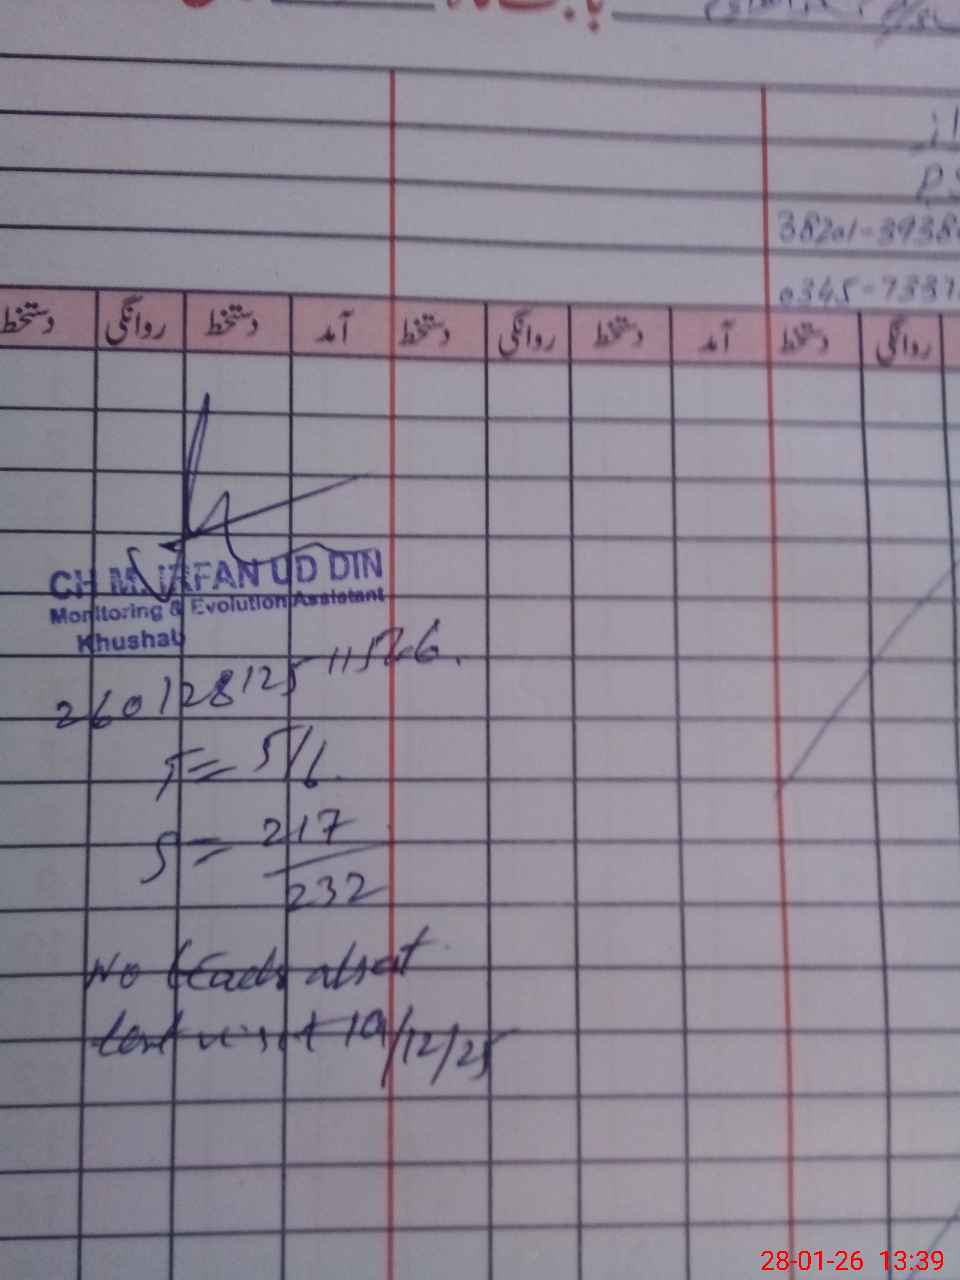 38201-3938
0345-7337
دستخط روانگی دستخط آمد دستخط روانگی دستخط آمد دستخط روانگی
CH M. IRFAN UD DIN
Monitoring & Evolution Assistant
Khushab
260128125
= 5/6
S = 217
232
No Teacher absent
last visit 19/12/25
28-01-26 13:39